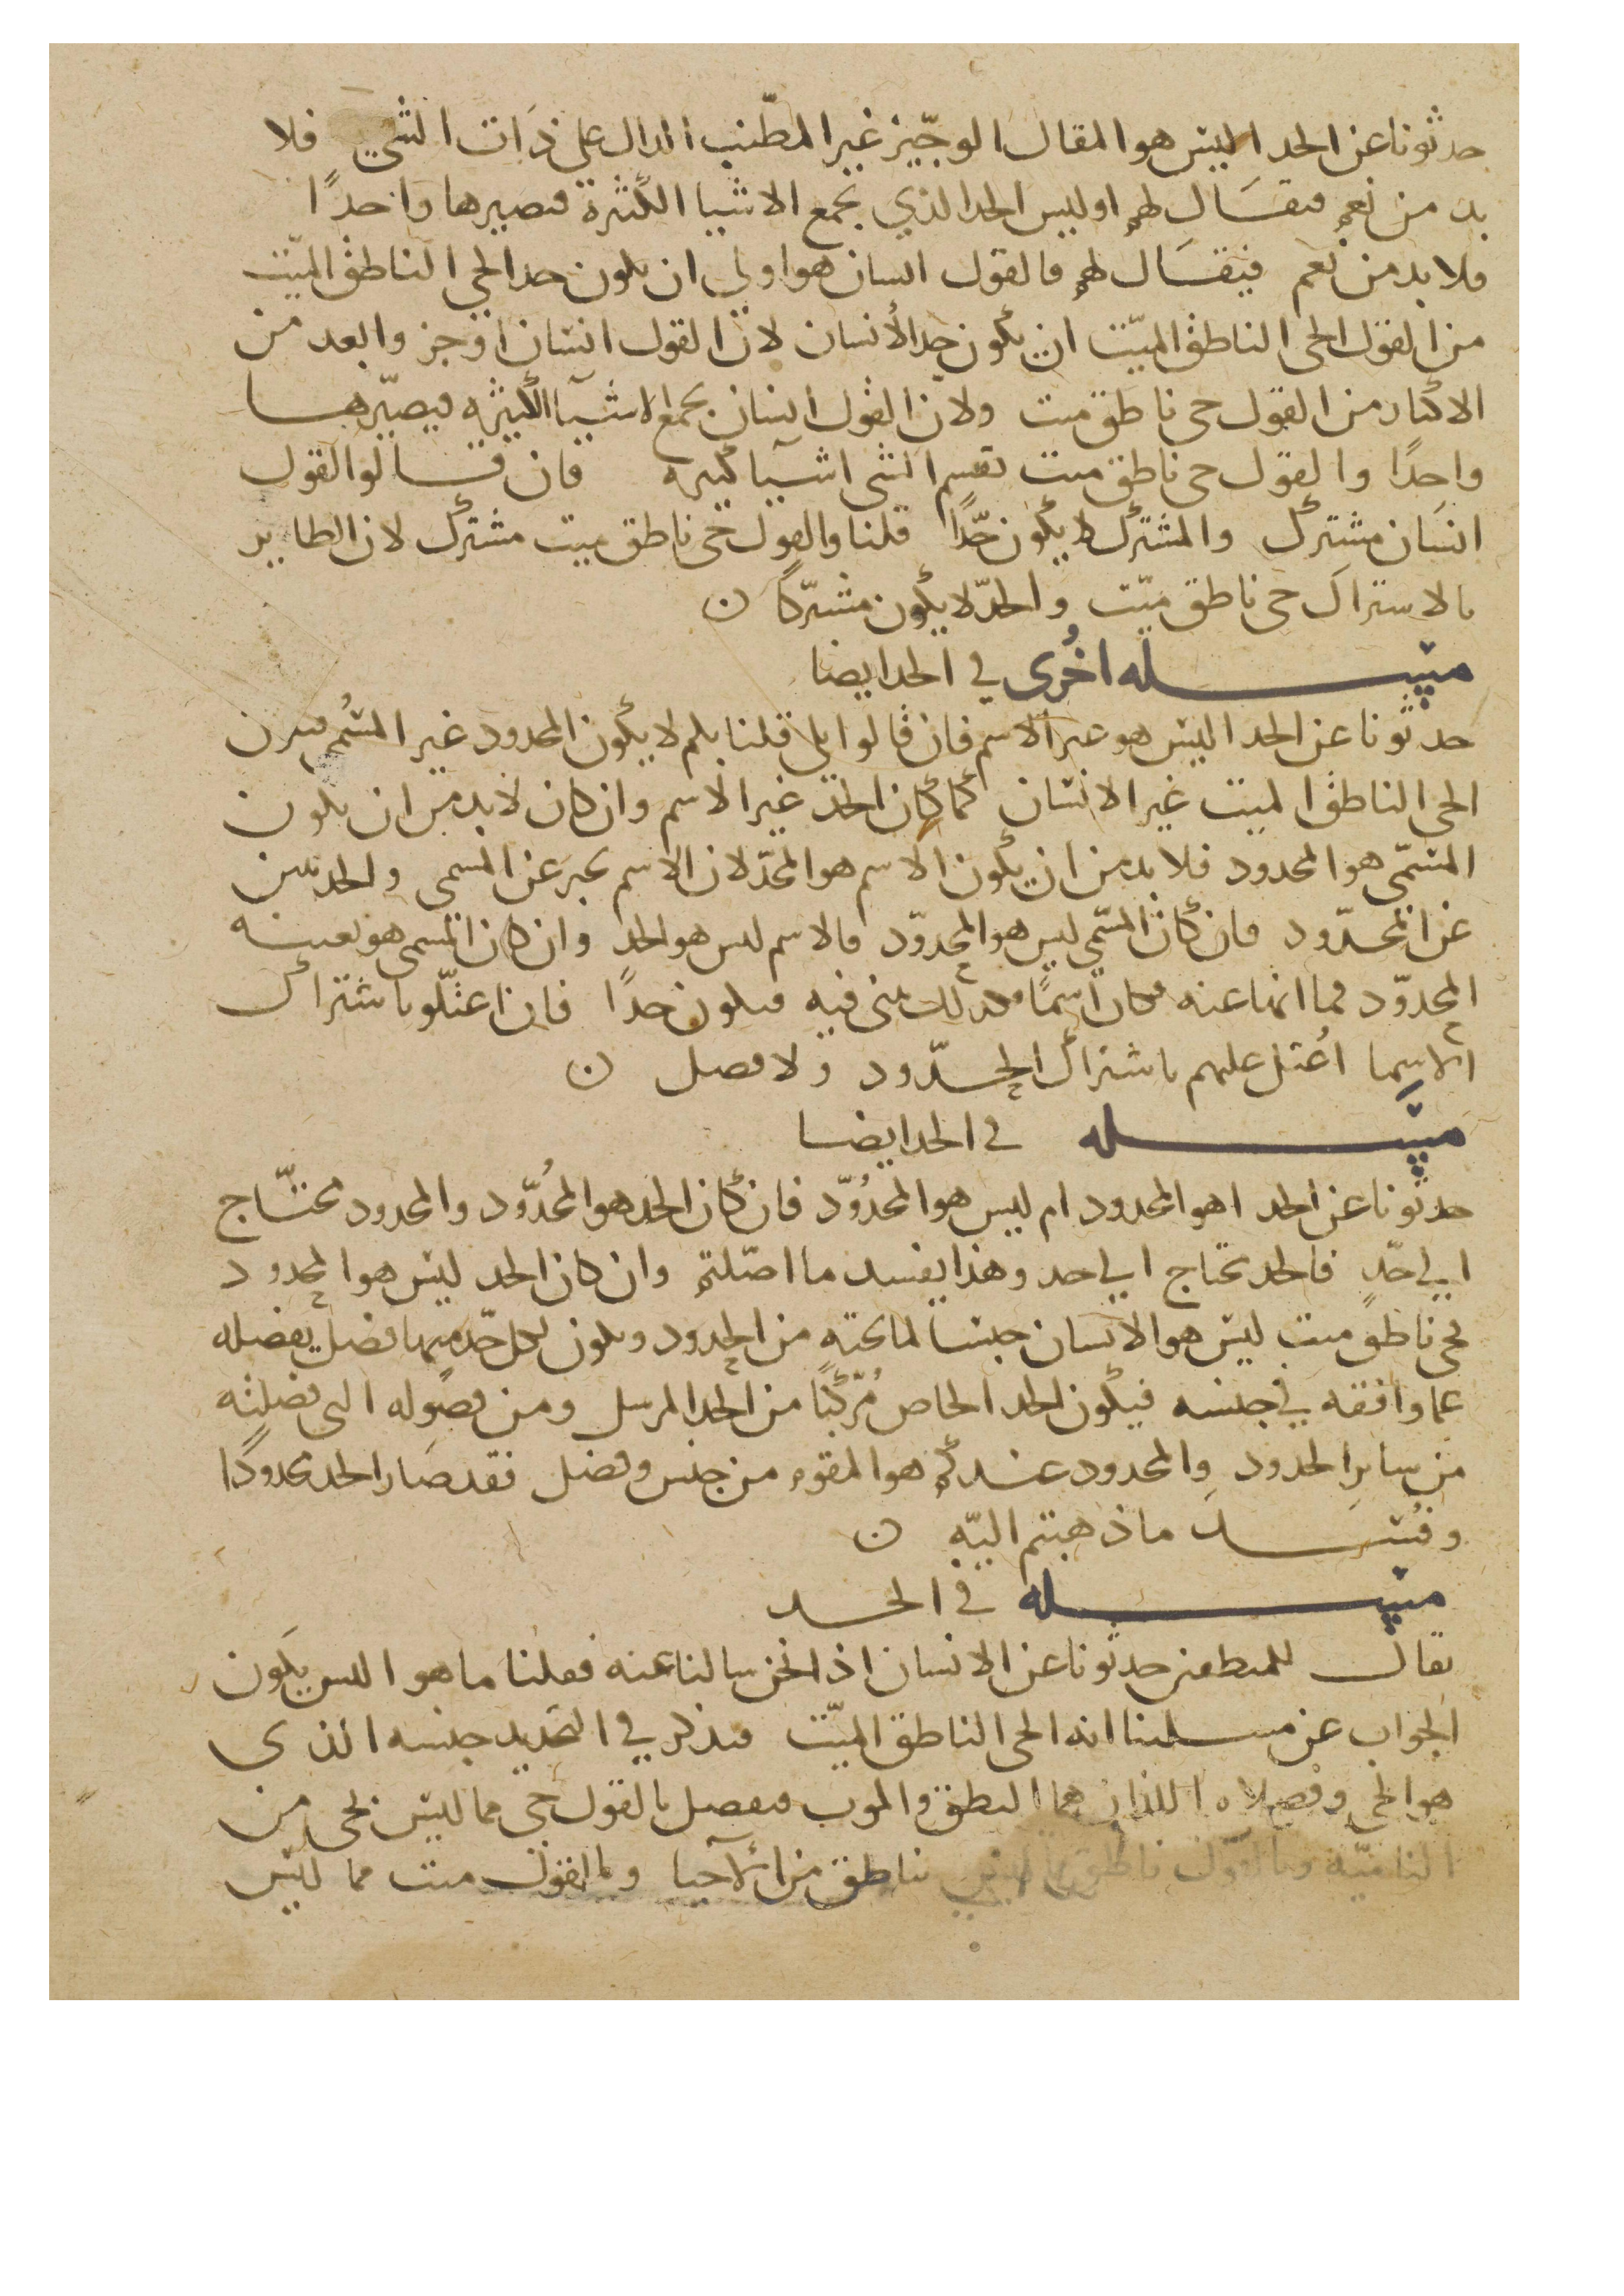 حدثونا عن الحد اليس هو المقال الوجيز غير المطنب الدال على ذات الشي فلا
بد من نعم فيقال لهم اوليس الحد الذي يجمع الاشيا الكثيرة فيصيرها واحدًا
فلا بد من نعم فيقال لهم فالقول انسان هو اولى ان يكون حد الحي الناطق الميّت
من القول الحي الناطق الميّت ان يكون حد الأنسان لان القول انسان اوجز وابعد من
الاكثار من القول حي ناطق ميت ولان القول انسان يجمع الاشيآ الكثيره فيصيّرها
واحدًا والقول حي ناطق ميت تقسم الشي اشيآ كثيره فان قالوا القول
انسان مشترك والمشترك لا يكون حدًّا قلنا والقول حي ناطق ميت مشترك لان الطاير
بالاشتراك حي ناطق ميّت والحدّ لا يكون مشتركًا ن
مسله اخرى في الحد ايضا
حدثونا عن الحد اليس هو غير الاسم فان قالوا بلى قلنا فلم لا يكون المحدود غير المسُمى فيكون
الحي الناطق الميت غير الانسان كما كان الحد غير الاسم وان كان لا بد من ان يكون
المسمّى هو المحدود فلا بد من ان يكون الاسم هو الحدّ لان الاسم يخبر عن المسمى والحد يبين
عن المحدّود فان كان المسّمى ليس هو المحدوّد فالاسم ليس هو الحد وان كان المسمى هو بعينه
المحدوّد فما انبا عنه فكان اسمًا فهو كذلك ينبى فيه فيكون حدًا فان اعتلّو باشتراك
الاسِما اُعتل عليهم باشتراك الحدّود ولا فصل ن
مسله في الحد ايضا
حدثونا عن الحد اهو المحدود ام ليس هو المحدُوّد فان كان الحد هو المحُدّود والمحدود محتّاج
الى حدّ فالحد يحتاج الى حد وهذا يفسد ما اصّلتم وان كان الحد ليس هو المحدود
فحي ناطق ميت ليس هو الانسان جنسا لما تحته من الحدود ويكون لكل حدّ منها فصل يفصله
عما وافقه في جنسه فيكون الحد الخاص مُرّكبًا من الحد المرسل ومن فصُوله التي فصلته
من سايرِ الحدود والمحدود عندكم هو المقوم من جنس وفصل فقد صَار الحد محدودًا
وفسد ما ذهبتم اليّه ن
مسله في الحد
يقال للمنطقين حدثونا عن الانسان اذا نحن سالنا عنه فقلنا ما هو اليس يكَون
الجواب عن مسلتنا انه الحي الناطق الميّت فيذكر في التحديد جنسه الذي
هو الحي وفصلاه اللذان هما النطق والموت فيفصل بالقول حي مما ليس بحي من
الناميّة وبالقول ناطق مما ليس بناطق من الآحيا وبالقول ميت مما ليس